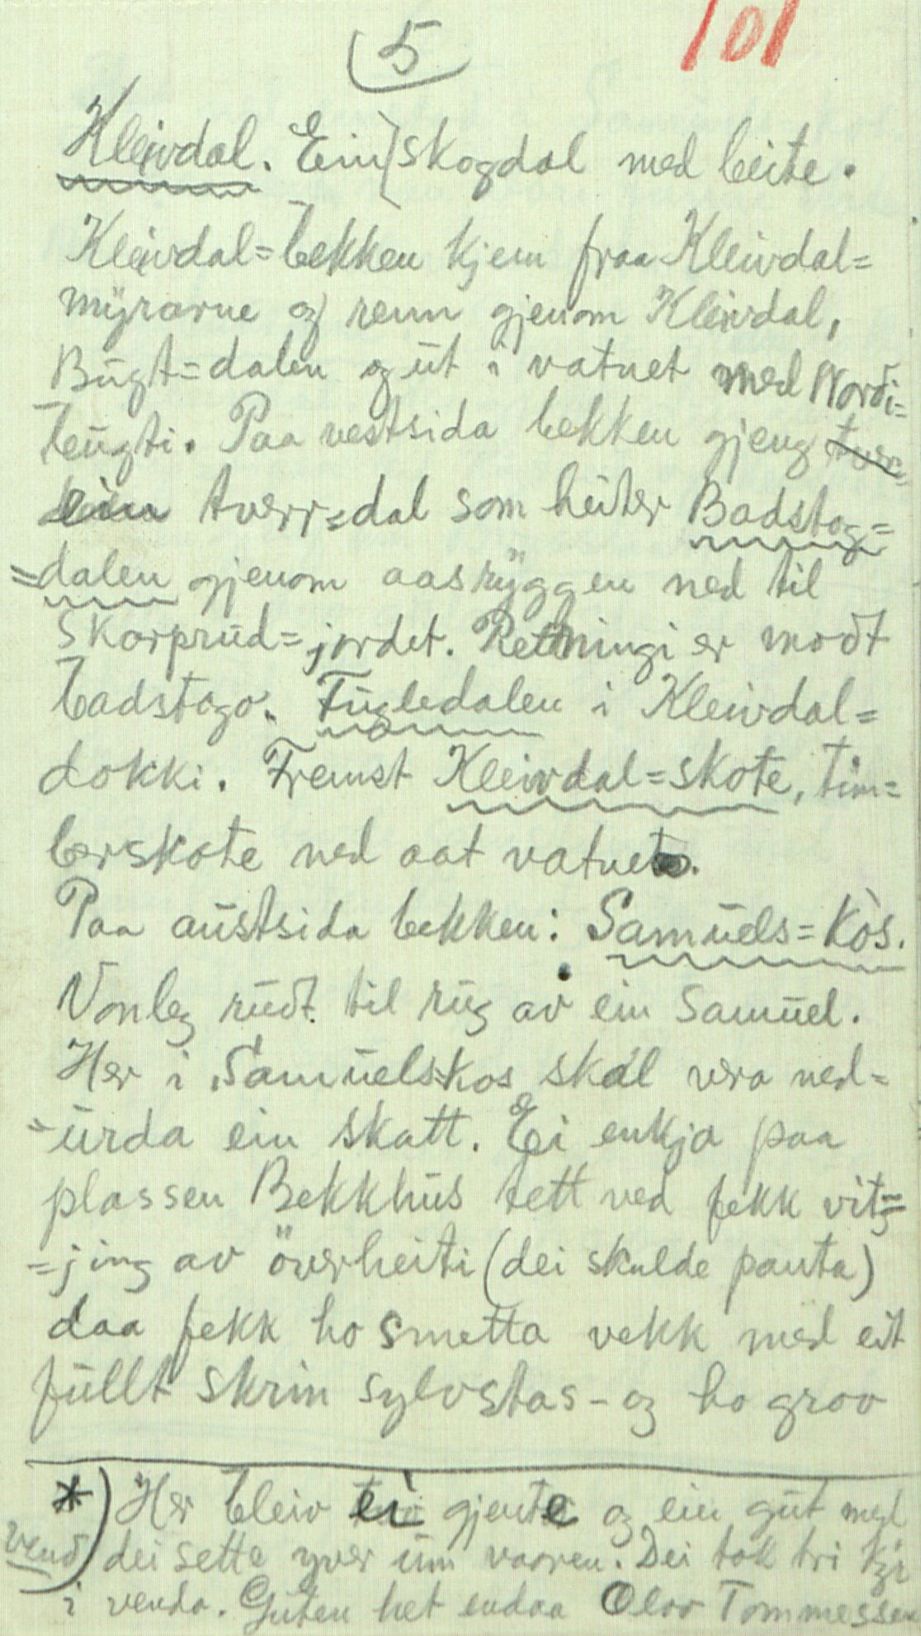 5
101
Kleivdal. Ein skogdal med beite.
Kleivdal=bekken kjem fraa Kleivdal=
myrarne og renn gjenom Kleivdal,
Bugt=dalen og ut i vatnet med Nordi=
bugti. Paa vestsida bekken gjeng tver=
ein tverr=dal som heiter Badstog=
=dalen gjenom aasryggen ned til
Skarprud=jordet. Retningi er modt
badstogo. Fugledalen i Kleivdal=
dokki. Fremst Kleivdal=skote, tim=
berskote ned aat vatnet.
Paa austsida bekken: Samuels=Kòs.
Vonleg rudt til rug av ein Samuel.
Her i Samuelskos skal vera ned=
=urda ein skatt. Ei enkja paa
plassen Bekkhus tett ved fekk vit=
=jing av överheiti (dei skulde panta)
daa fekk ho smetta vekk med eit
fullt skrin sylvstas - og ho grov
*) Her bleiv ei gjente og ein gut med
vend dei sette yver um vaaren. Dei tok tri
i venda. Guten het endaa Olav Tommessen